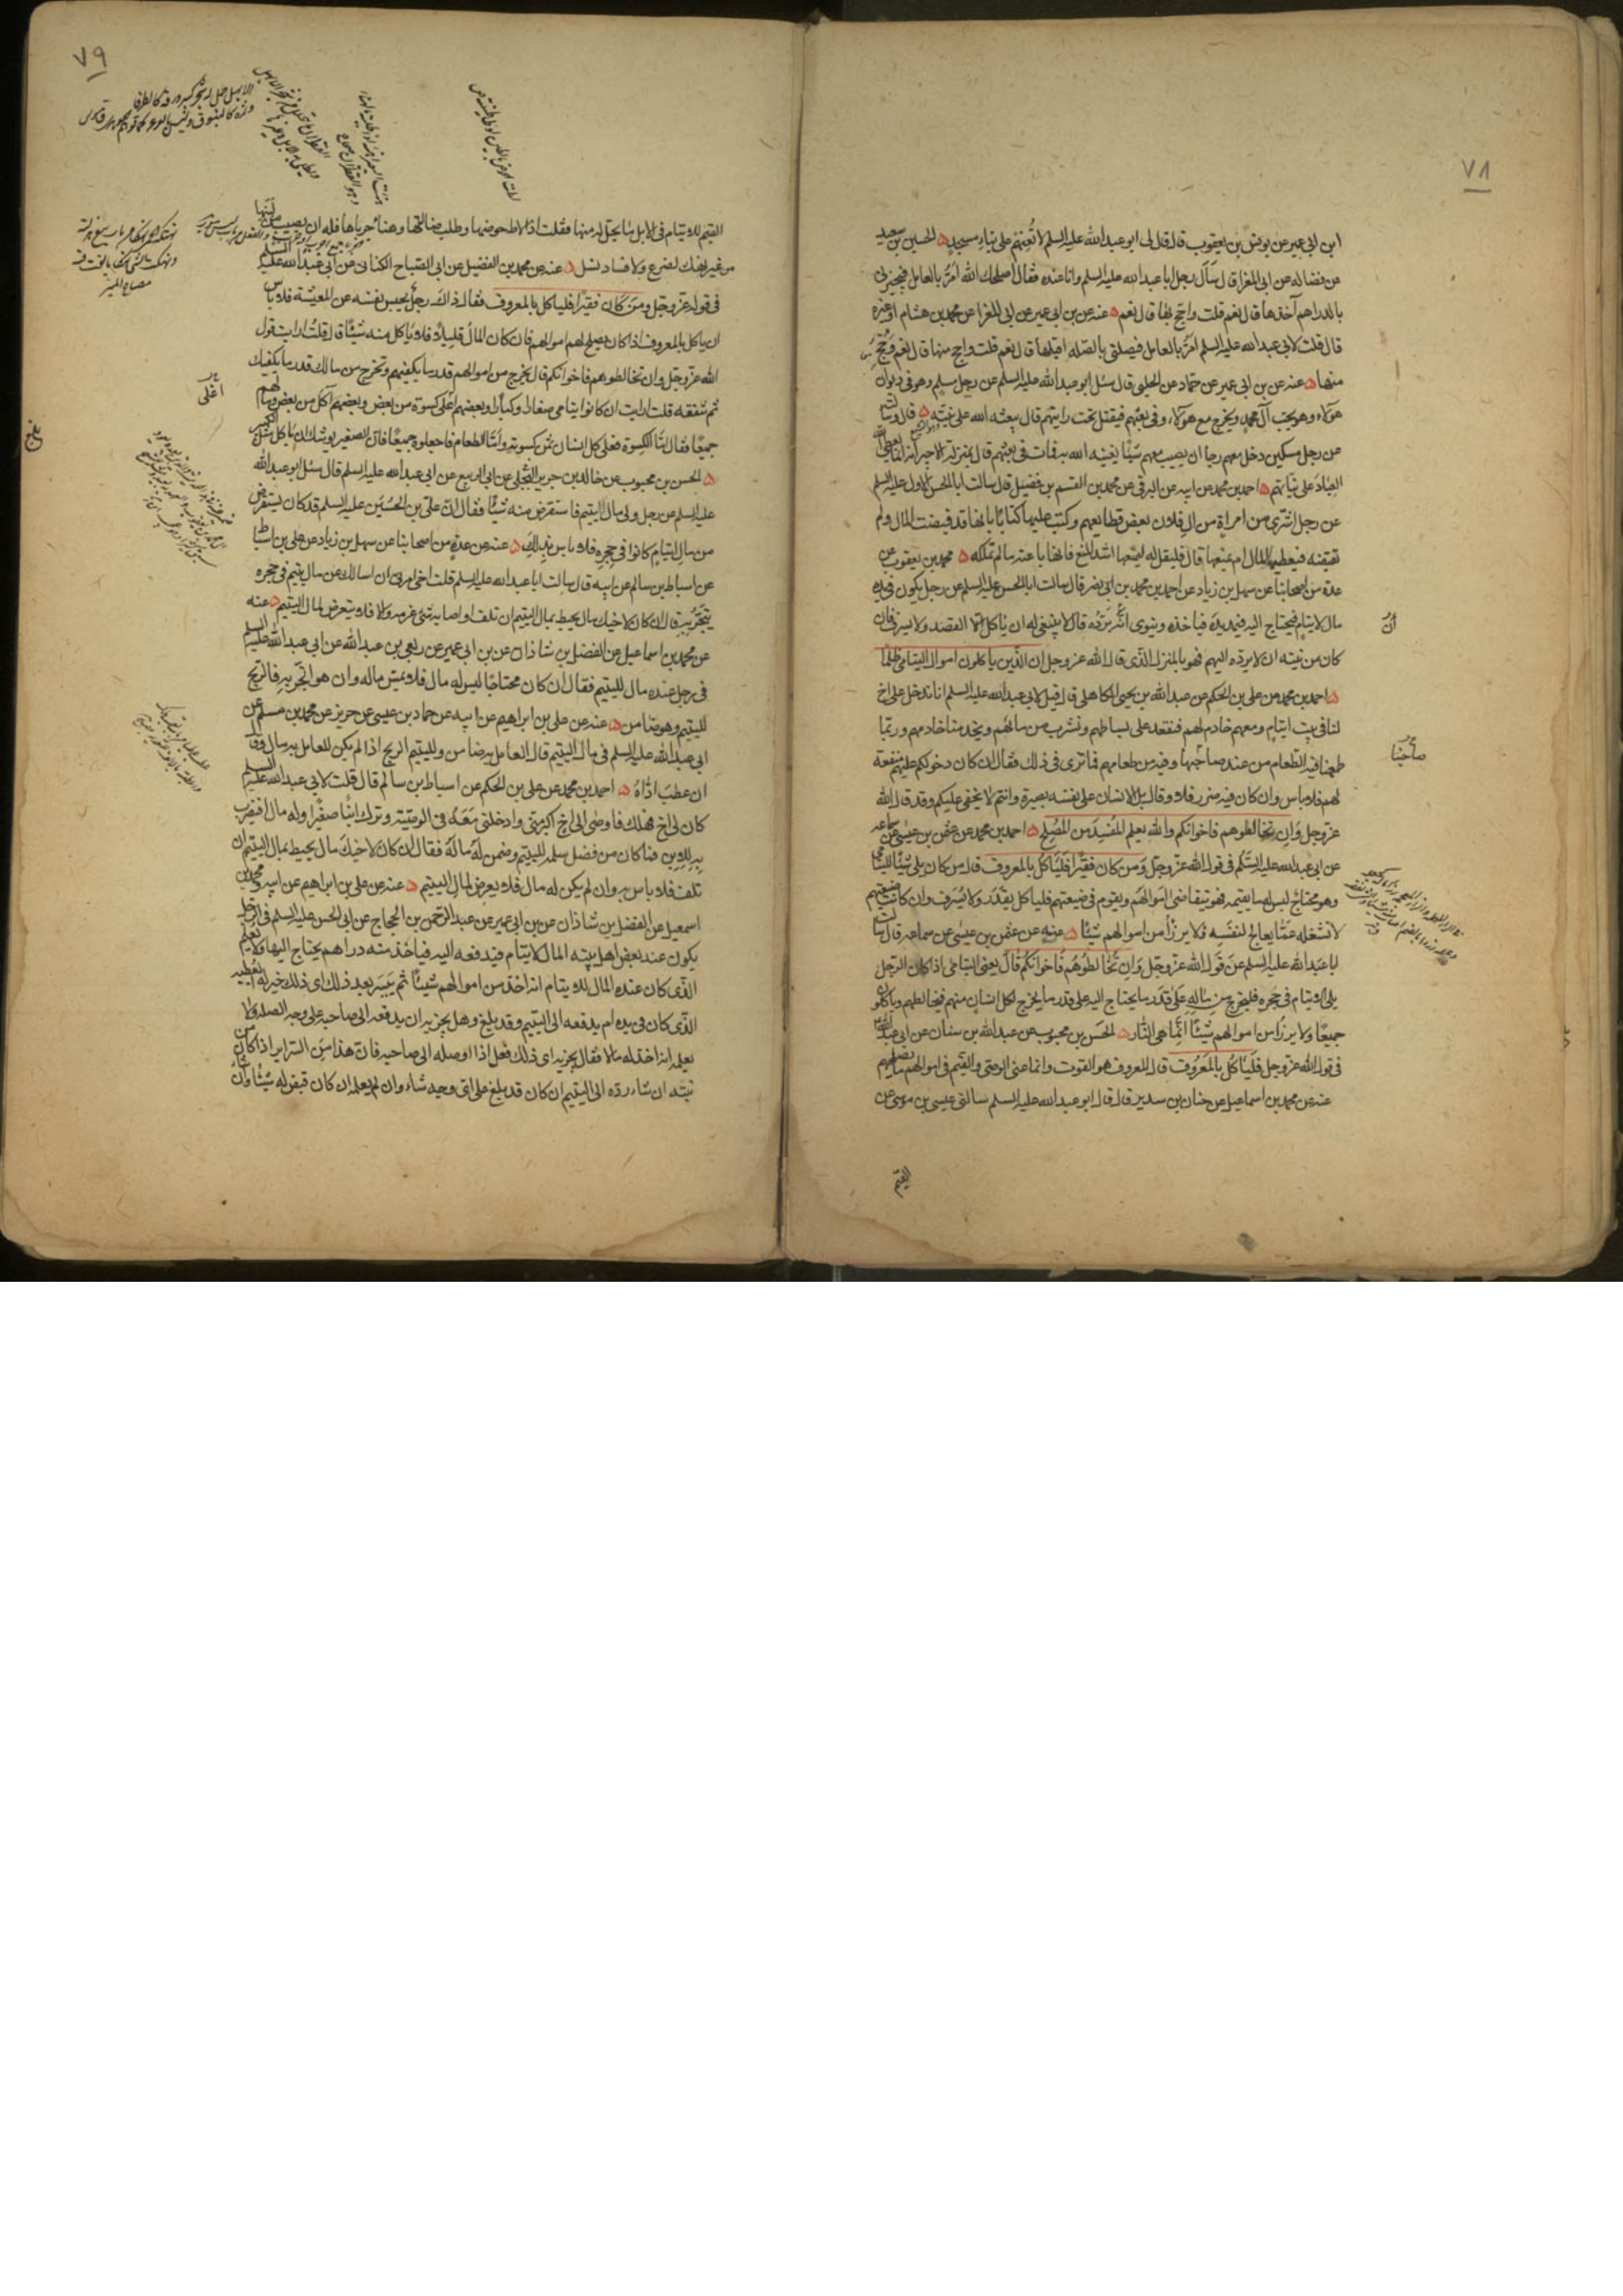 ٧٨
ابن ابى عمير عن يونس بن يعقوب قال قال لى ابو عبد الله عليه السلم لا تُعنهم على بناء مسجد الحسين بن سعيد
عن فضالة عن ابى المغرا قال سَاَل رجل ابا عبد الله عليه السلم وانا عنده فقال اصلحك الله امرّ بالعامل فيجيزنى
بالدراهم آخذها قال نعم قلت واحج بها قال نعم عنه عن بن ابى عمير عن ابى المغرا عن محمد بن هشام او غيره
قال قلت لابى عبد الله عليه السلم امرّ بالعامل فيصلنى بالصّله اقبلها قال نعم قلت واحج منها قال نعم وحُجّ
منها عنه عن بن ابى عمير عن حمّاد عن الحلبى قال سئل ابو عبد الله عليه السلم عن رجل مسلم وهو فى ديوان
هؤلاء وهو يحب آل محمد ويخرج مع هؤلاء وفى بعثهم فيقتل تحت رايتهم قال يبعثه الله على نيّته قال وسالته
عن رجل مسكين دخل معهم رجا ان يصيب معهم شيئًا يغنيه الله به فمات فى بعثهم قال بمنزلة الاجير انه انما يعطى الله
العِبادَ على نيّاتهم احمد بن محمد عن ابيه عن البرقى عن محمد بن القسم بن فضيل قال سالت ابا الحسن الاول عليه السلم
عن رجل اشترى من امراة من ال فلان بعض قطايعهم وكتب عليها كتابًا بانها قد قبضت المال ولم
تقبضه فيعطيها المال ام يمنعها قال فليقل له ليمنعها اشد المنع فانها باعته ما لم تملكه محمد بن يعقوب عن
عدة من اصحابنا عن سهل بن زياد عن احمد بن محمد بن ابى نصر قال سالت ابا الحسن عليه السلم عن رجل يكون فى يده
مال لايتام فيحتاج اليه فيمد يده فياخذه وينوى انّه يردّه قال لا ينبغى له ان ياكل الا القصد ولا يسرف فان
كان من نيته ان لا يرده اليهم فهو بالمنزل الّذى قال الله عز وجل ان الّذين ياكلون اموال اليتامى ظلمًا
احمد بن محمد عن على بن الحكم عن عبد الله بن يحيى الكاهلى قال قيل لابى عبد الله عليه السلم انا ندخل على اخ
لنا فى بيت ايتام ومعهم خادم لهم فنقعد على بساطهم ونشرب من مائهم ويخدمنا خادمهم وربّما
طعمنا فيه الطعام من عند صاحبها وفيه من طعامهم فما ترى فى ذلك فقال ان كان دخولكم عليهم منفعة
لهم فلا باس وان كان فيه ضرر فلا وقال بل الانسان على نفسه بصيرة وانتم لا يخفى عليكم وقد قال الله
عز وجل وَان تخالطوهم فاخوانكم والله يعلم المُفسِدَ من المُصلِح احمد بن محمد عن عثمن بن عيسى عن سماعه
عن ابى عبد الله عليه السّلم فى قول الله عزّ وجلّ وَمن كان فقيرًا فَليَاكُل بالمعروف قال من كان يلى شيئًا لليتامى
وهو محتاج ليس له ما يقيمه فهو يتقاضى اموالهم ويقوم فى ضيعتهم فلياكل بقَدَر ولا يُسرف وان كانت ضيعتهم
لا تشغله عمّا يعالج لنفسه فلا يرزأ من اموالهم شيئًا عنه عن عثمن بن عيسى عن سماعه قال سالت
ابا عبد الله عليه السلم عن قول الله عزّ وجلّ وَان تخالطوهُم فاخوانكم قال يعنى اليتامى اذا كان الرّجل
يلى الايتام فى حجره فليخرج من ماله على قدر ما يحتاج اليه على قدر ما يخرج لكل انسان منهم فيخالطهم وياكلون
جميعًا ولا يرزأ من اموالهم شيئًا انّما هى النّار الحَسَن بن محبوب عن عبد الله بن سنان عن ابى عبد الله
فى قول الله عز وجل فَليَاكُل بالمَعروف قال المعروف هو القوت وانما عنى الوصى والقيّم فى اموالهم ما يصلحهم
عنه عن محمد بن اسماعيل عن حنان بن سدير قال قال ابو عبد الله عليه السلم سالنى عيسى بن موسى عن
صاحبنا
القيم
٧٩
القيم للايتام فى الابل ما يحل له منها فقلت اذا لاط حوضها وطلب ضالتها وهنأ جرباها فله ان يصيب من لبنها
من غير نهك لضرع ولا فساد نسل عنه عن محمد بن الفضيل عن ابى الصّباح الكنانى عن ابى عبد الله عليه السلم
فى قوله عزّ وجلّ ومَن كان فقيرًا فلياكل بالمعروف فقال ذلك رجل يحبس نفسه عن المعيشة فلا باس
ان ياكل بالمعروف اذا كان يصلح لهم اموالهم فان كان المالُ قليلاً فلا ياكل منه شيئًا قال قلتُ ارايت قول
الله عزّ وجلّ وان تخالطوهم فاخوانكم قال يخرج من اموالهم قدر ما يكفيهم وتخرج من مالك قدر ما يكفيك
ثم تنفقه قلت ارايت ان كانوا يتامى صغارًا وكبارًا وبعضهم اعلى كسوة من بعض وبعضهم آكل من بعض ومالهم
جميعًا فقال امّا الكسوة فعلى كل انسان ثمن كسوته وامّا الطعام فاجعلوه جميعًا فانّ الصغير يوشك ان ياكل مثل الكبير
الحسن بن محبوب عن خالد بن جرير البَجَلى عن ابى الربيع عن ابى عبد الله عليه السلم قال سئل ابو عبد الله
عليه السلم عن رجل ولى مال اليتيم فاستقرض منه شيئًا فقال انّ علىّ بن الحُسَين عليه السلم قد كان يستقرض
من مال ايتام كانوا فى حجره فلا باس بذلك عنه عن عدة من اصحابنا عن سهل بن زياد عن على بن اسباط
عن اسباط بن سالم عن ابيه قال سالت ابا عبد الله عليه السلم قلت اخى امرنى ان اسالك عن مال يتيم فى حجره
يتّجر به قال ان كان لاخيك مال يحيط بمال اليتيم ان تلف او اصابه شئ غرمه والا فلا يتعرض لمال اليتيم عنه
عن محمد بن اسماعيل عن الفضل بن شاذان عن بن ابى عمير عن ربعى بن عبد الله عن ابى عبد الله عليه السلم
فى رجل عنده مال لليتيم فقال ان كان محتاجًا ليس له مال فلا يمس ماله وان هو اتّجر به فالربح
لليتيم وهو ضامن عنه عن على بن ابراهيم عن ابيه عن حماد بن عيسى عن حريز عن محمد بن مسلم عن
ابى عبد الله عليه السلم فى مال اليتيم قال العامل به ضامن ولليتيم الربح اذا لم يكن للعامل به مال وقال
ان عطب ادّاهُ احمد بن محمد عن على بن الحكم عن اسباط بن سالم قال قلت لابى عبد الله عليه السلم
كان لى اخ هلك فاوصى الى اخ اكبر منى وادخلنى مَعَهُ فى الوصيّة وترك ابنًا صغيرًا وله مال افيضرب
به للابن فما كان من فضل سلمه لليتيم وضمن لَهُ مالَهُ فقال ان كان لاخيك مال يحيط بمال اليتيم ان
تلف فلا باس به وان لم يكن له مال فلا يعرض لمال اليتيم عنه عن على بن ابراهيم عن ابيه ومحمد بن
اسمعيل عن الفضل بن شاذان عن بن ابى عمير عن عبد الرّحمن بن الحجاج عن ابى الحسن عليه السلم فى الرجل
يكون عند بعض اهل بيته المال لايتام فيدفعه اليه فياخذ منه دراهم يحتاج اليها ولا يعلم
الّذى كان عنده المال للايتام انه اخذ من اموالهم شيئًا ثم يتيسّر بعد ذلك اى ذلك خير له ايعطيه
الّذى كان فى يده ام يدفعه الى اليتيم وقد بلغ وهل يجزيه ان يدفعه الى صاحبه على وجه الصله ولا
يعلمه انه اخذ له مالا فقال يجزيه اى ذلك فعل اذا اوصله الى صاحبه فان هذا من السرايراذا كان من
نيته ان شاء رده الى اليتيم ان كان قد بلغ على اى وجه شاء وان لم يعلمه ان كان قبض له شيئًا وان شاء
اعلى
بلغ